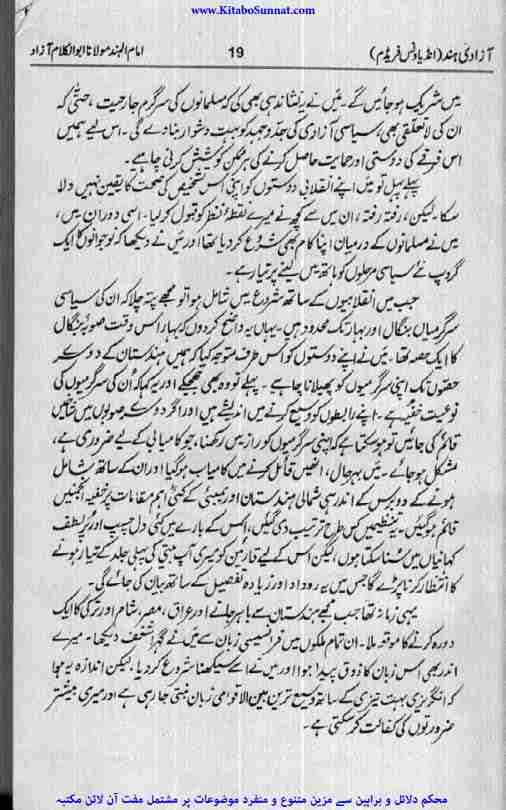 www.KitaboSunnat.com
آزادیٔ ہند (انڈیا ونس فریڈم) 19 امام الہند مولانا ابوالکلام آزاد
میں شریک ہو جائیں گے۔ میں نے یہ نشاندہی بھی کی کہ مسلمانوں کی سرگرم جارحیت، حتیٰ کہ
ان کی لاتعلقی بھی، سیاسی آزادی کی جدوجہد کو بہت دشوار بنا دے گی۔ اس لیے ہمیں
اس فرقے کی دوستی اور حمایت حاصل کرنے کی ہر ممکن کوشش کرنی چاہیے۔
پہلے پہل تو میں اپنے انقلابی دوستوں کو اپنی اس تشخیص کی صحت کا یقین نہیں دلا
سکا۔ لیکن، رفتہ رفتہ، ان میں سے کچھ نے میرے نقطۂ نظر کو قبول کر لیا۔ اسی دوران میں،
میں نے مسلمانوں کے درمیان اپنا کام بھی شروع کر دیا تھا اور میں نے دیکھا کہ نوجوانوں کا ایک
گروپ نئے سیاسی مرحلوں کو ہاتھ میں لینے پر تیار ہے۔
جب میں انقلابیوں کے ساتھ شروع میں شامل ہوا تو مجھے پتہ چلا کہ ان کی سیاسی
سرگرمیاں بنگال اور بہار تک محدود ہیں۔ یہاں یہ واضح کر دوں کہ بہار اس وقت صوبۂ بنگال
کا ایک حصہ تھا۔ میں نے اپنے دوستوں کو اس طرف متوجہ کیا کہ ہمیں ہندستان کے دوسرے
حصوں تک اپنی سرگرمیوں کو پھیلانا چاہیے۔ پہلے تو وہ بھی جھجکے اور یہ کہا کہ اُن کی سرگرمیوں کی
نوعیت خفیہ ہے۔ اپنے رابطوں کو وسیع کرنے میں اندیشے ہیں اور اگر دوسرے صوبوں میں شاخیں
قائم کی جائیں تو ہو سکتا ہے کہ اپنی سرگرمیوں کو راز میں رکھنا، جو کامیابی کے لیے ضروری ہے،
مشکل ہو جائے۔ میں بہر حال، انھیں قائل کرنے میں کامیاب ہو گیا اور ان کے ساتھ شامل
ہونے کے دو برس کے اندر ہی شمالی ہندستان اور بمبئی کے کئی اہم مقامات پر خفیہ انجمنیں
قائم ہو گئیں۔ یہ تنظیمیں کس طرح ترتیب دی گئیں، اس کے بارے میں کئی دل چسپ اور پُر لطف
کہانیاں میں سُنا سکتا ہوں، لیکن اس کے لیے قارئین کو میری آپ بیتی کی پہلی جلد کے تیار ہونے
کا انتظار کرنا پڑے گا جس میں یہ روداد اور زیادہ تفصیل کے ساتھ بیان کی جائے گی۔
یہی زمانہ تھا جب مجھے ہندستان سے باہر جانے اور عراق، مصر، شام اور ترکی کا ایک
دورہ کرنے کا موقعہ ملا۔ ان تمام ملکوں میں فرانسیسی زبان سے میں نے گہرا شغف دیکھا۔ میرے
اندر بھی اس زبان کا ذوق پیدا ہوا اور میں نے اسے سیکھنا شروع کر دیا۔ لیکن اندازہ یہ ہوا
کہ انگریزی بہت تیزی کے ساتھ وسیع ترین بین الاقوامی زبان بنتی جا رہی ہے اور میری بیشتر
ضرورتوں کی کفالت کر سکتی ہے۔
محکم دلائل و براہین سے مزین متنوع و منفرد موضوعات پر مشتمل مفت آن لائن مکتبہ